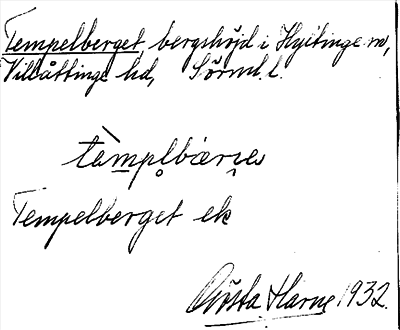 Tempelberget, bergshöjd i Hyltinge sn,
Villåttinge hd, Sörml. l.
tæ̀mpl̥bærɩ̯eṣ
Tempelberget ek
Gösta Harne 1932.